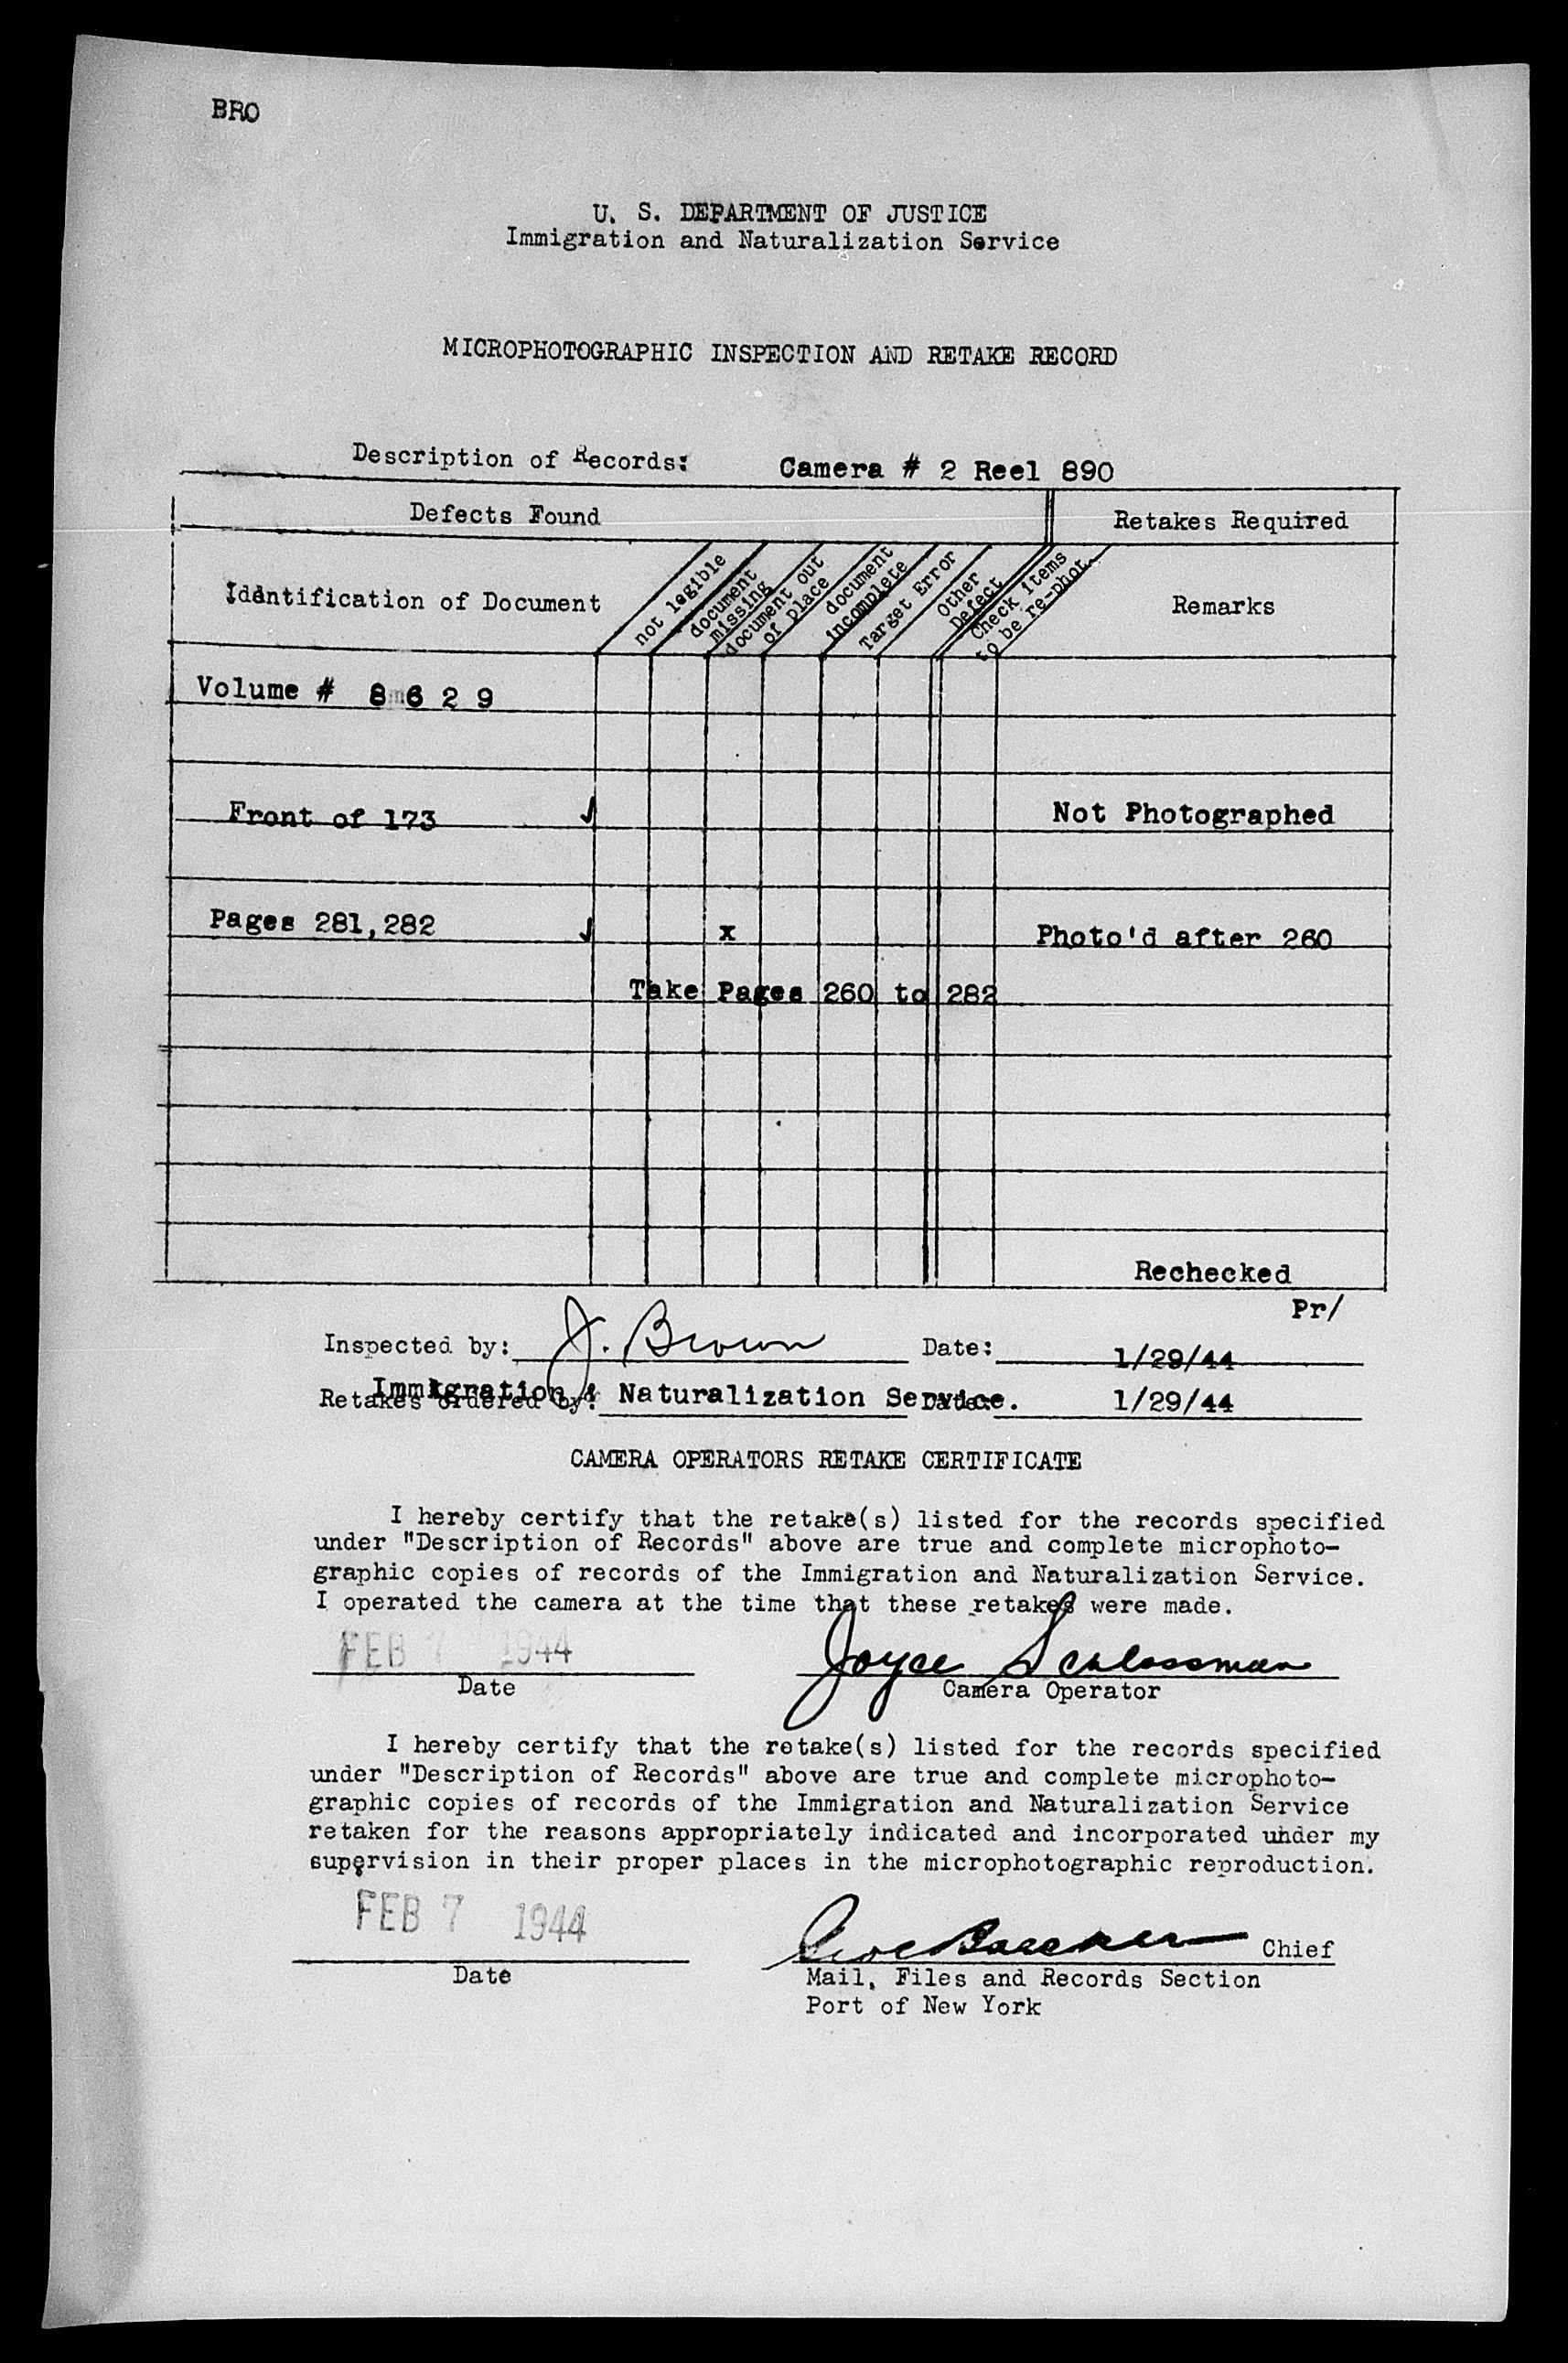 BRO
U. S. DEPARTMENT OF JUSTICE
Immigration and Naturalization Service
MICROPHOTOGRAPHIC INSPECTION AND RETAKE RECORD
Description of Records: Camera # 2 Reel 890
Defects Found Retakes Required
Identification of Document
not legible
document missing
document out of place
document incomplete
Target Error
Other Defect
Check items to be re-phot.
Remarks
Volume # 8 6 2 9
Front of 173 ✓ Not Photographed
Pages 281,282 ✓ x Photo'd after 260
Take Pages 260 to 282
Rechecked
Pr/
Inspected by: J. Brown Date: 1/29/44
Retakes ordered by: Immigration & Naturalization Service. Date: 1/29/44
CAMERA OPERATORS RETAKE CERTIFICATE
I hereby certify that the retake(s) listed for the records specified
under "Description of Records" above are true and complete microphoto-
graphic copies of records of the Immigration and Naturalization Service.
I operated the camera at the time that these retakes were made.
FEB 7 1944 Joyce Schlossman
Date Camera Operator
I hereby certify that the retake(s) listed for the records specified
under "Description of Records" above are true and complete microphoto-
graphic copies of records of the Immigration and Naturalization Service
retaken for the reasons appropriately indicated and incorporated under my
supervision in their proper places in the microphotographic reproduction.
FEB 7 1944
Chief
Date Mail, Files and Records Section
Port of New York